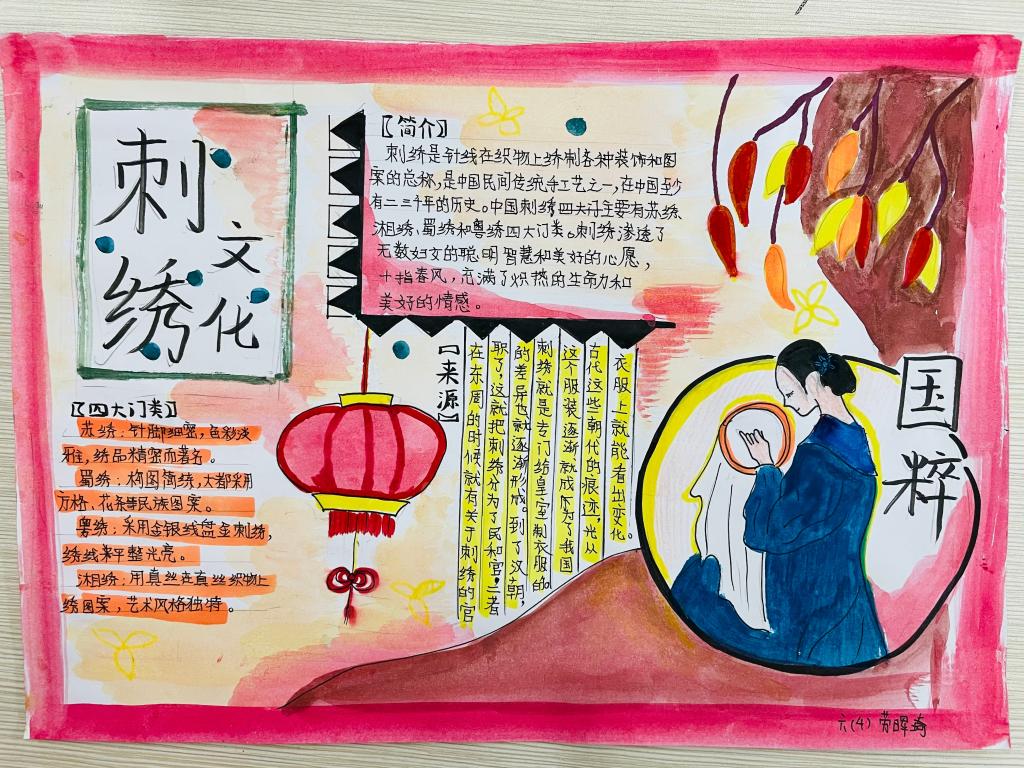 刺绣
文化
【简介】
刺绣是针线在织物上绣制各种装饰和图
案的总称,是中国民间传统手工艺之一,在中国至少
有二三千年的历史。中国刺绣四大门主要有苏绣、
湘绣、蜀绣和粤绣四大门类。刺绣渗透了
无数妇女的聪明智慧和美好的心愿,
十指春风,充满了炽热的生命力和
美好的情感。
【来源】
在东周的时候就有关于刺绣的官
职了,这就把刺绣分为了民和宫,二者
的差异也就逐渐形成。到了汉朝,
刺绣就是专门给皇室制衣服的。
这个服装逐渐就成为了我国
古代这些朝代的痕迹,光从
衣服上就能看出变化。
【四大门类】
苏绣:针脚细密,色彩淡
雅,绣品精密而著名。
蜀绣:构图简练,大都采用
方格、花条等民族图案。
粤绣:采用金银线盘金刺绣,
绣线平整光亮。
湘绣:用真丝在真丝织物上
绣图案,艺术风格独特。
国粹
六(4)劳晖